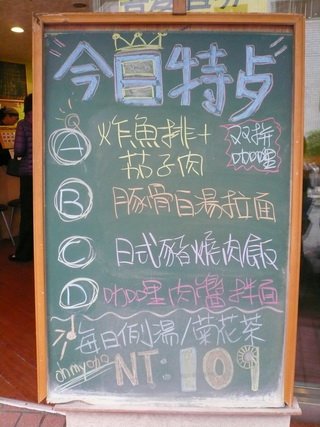 今日特歺
A 炸魚排+ 双拼
茄子肉 咖哩
B 豚骨白湯拉面
C 日式豬燒肉飯
D 咖哩肉醬拌面
每日例湯/菊花茶
NT:109